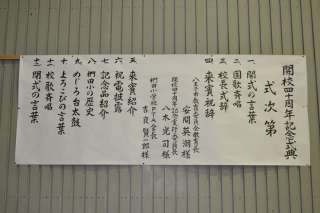 開校四十周年記念式典
式次第
一 開式の言葉
二 国歌斉唱
三 校長式辞
四 来賓祝辞
八王子市教育委員会教育長
安間英潮様
開校四十周年記念実行委員長
八木光司様
椚田小学校PTA会長
吉良賢一郎様
五 来賓紹介
六 祝電披露
七 記念品紹介
八 椚田小の歴史
九 めじろ台太鼓
十 よろこびの言葉
十一 校歌斉唱
十二 閉式の言葉